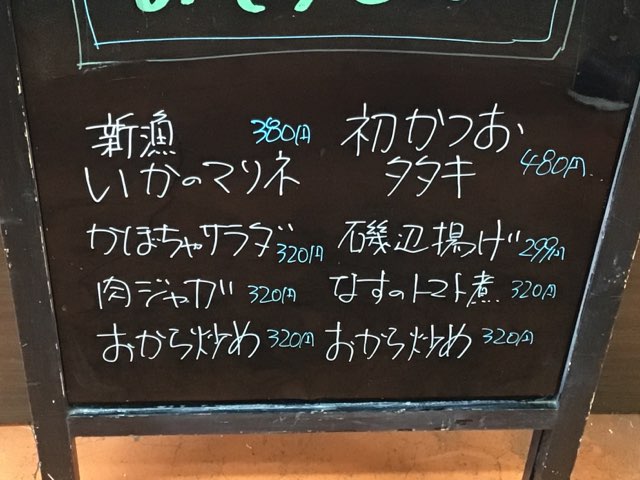 新漁 380円
いかのマリネ
初かつお
タタキ 480円
かぼちゃサラダ 320円
磯辺揚げ 299円
肉ジャガ 320円
なすのトマト煮 320円
おから炒め 320円
おから炒め 320円